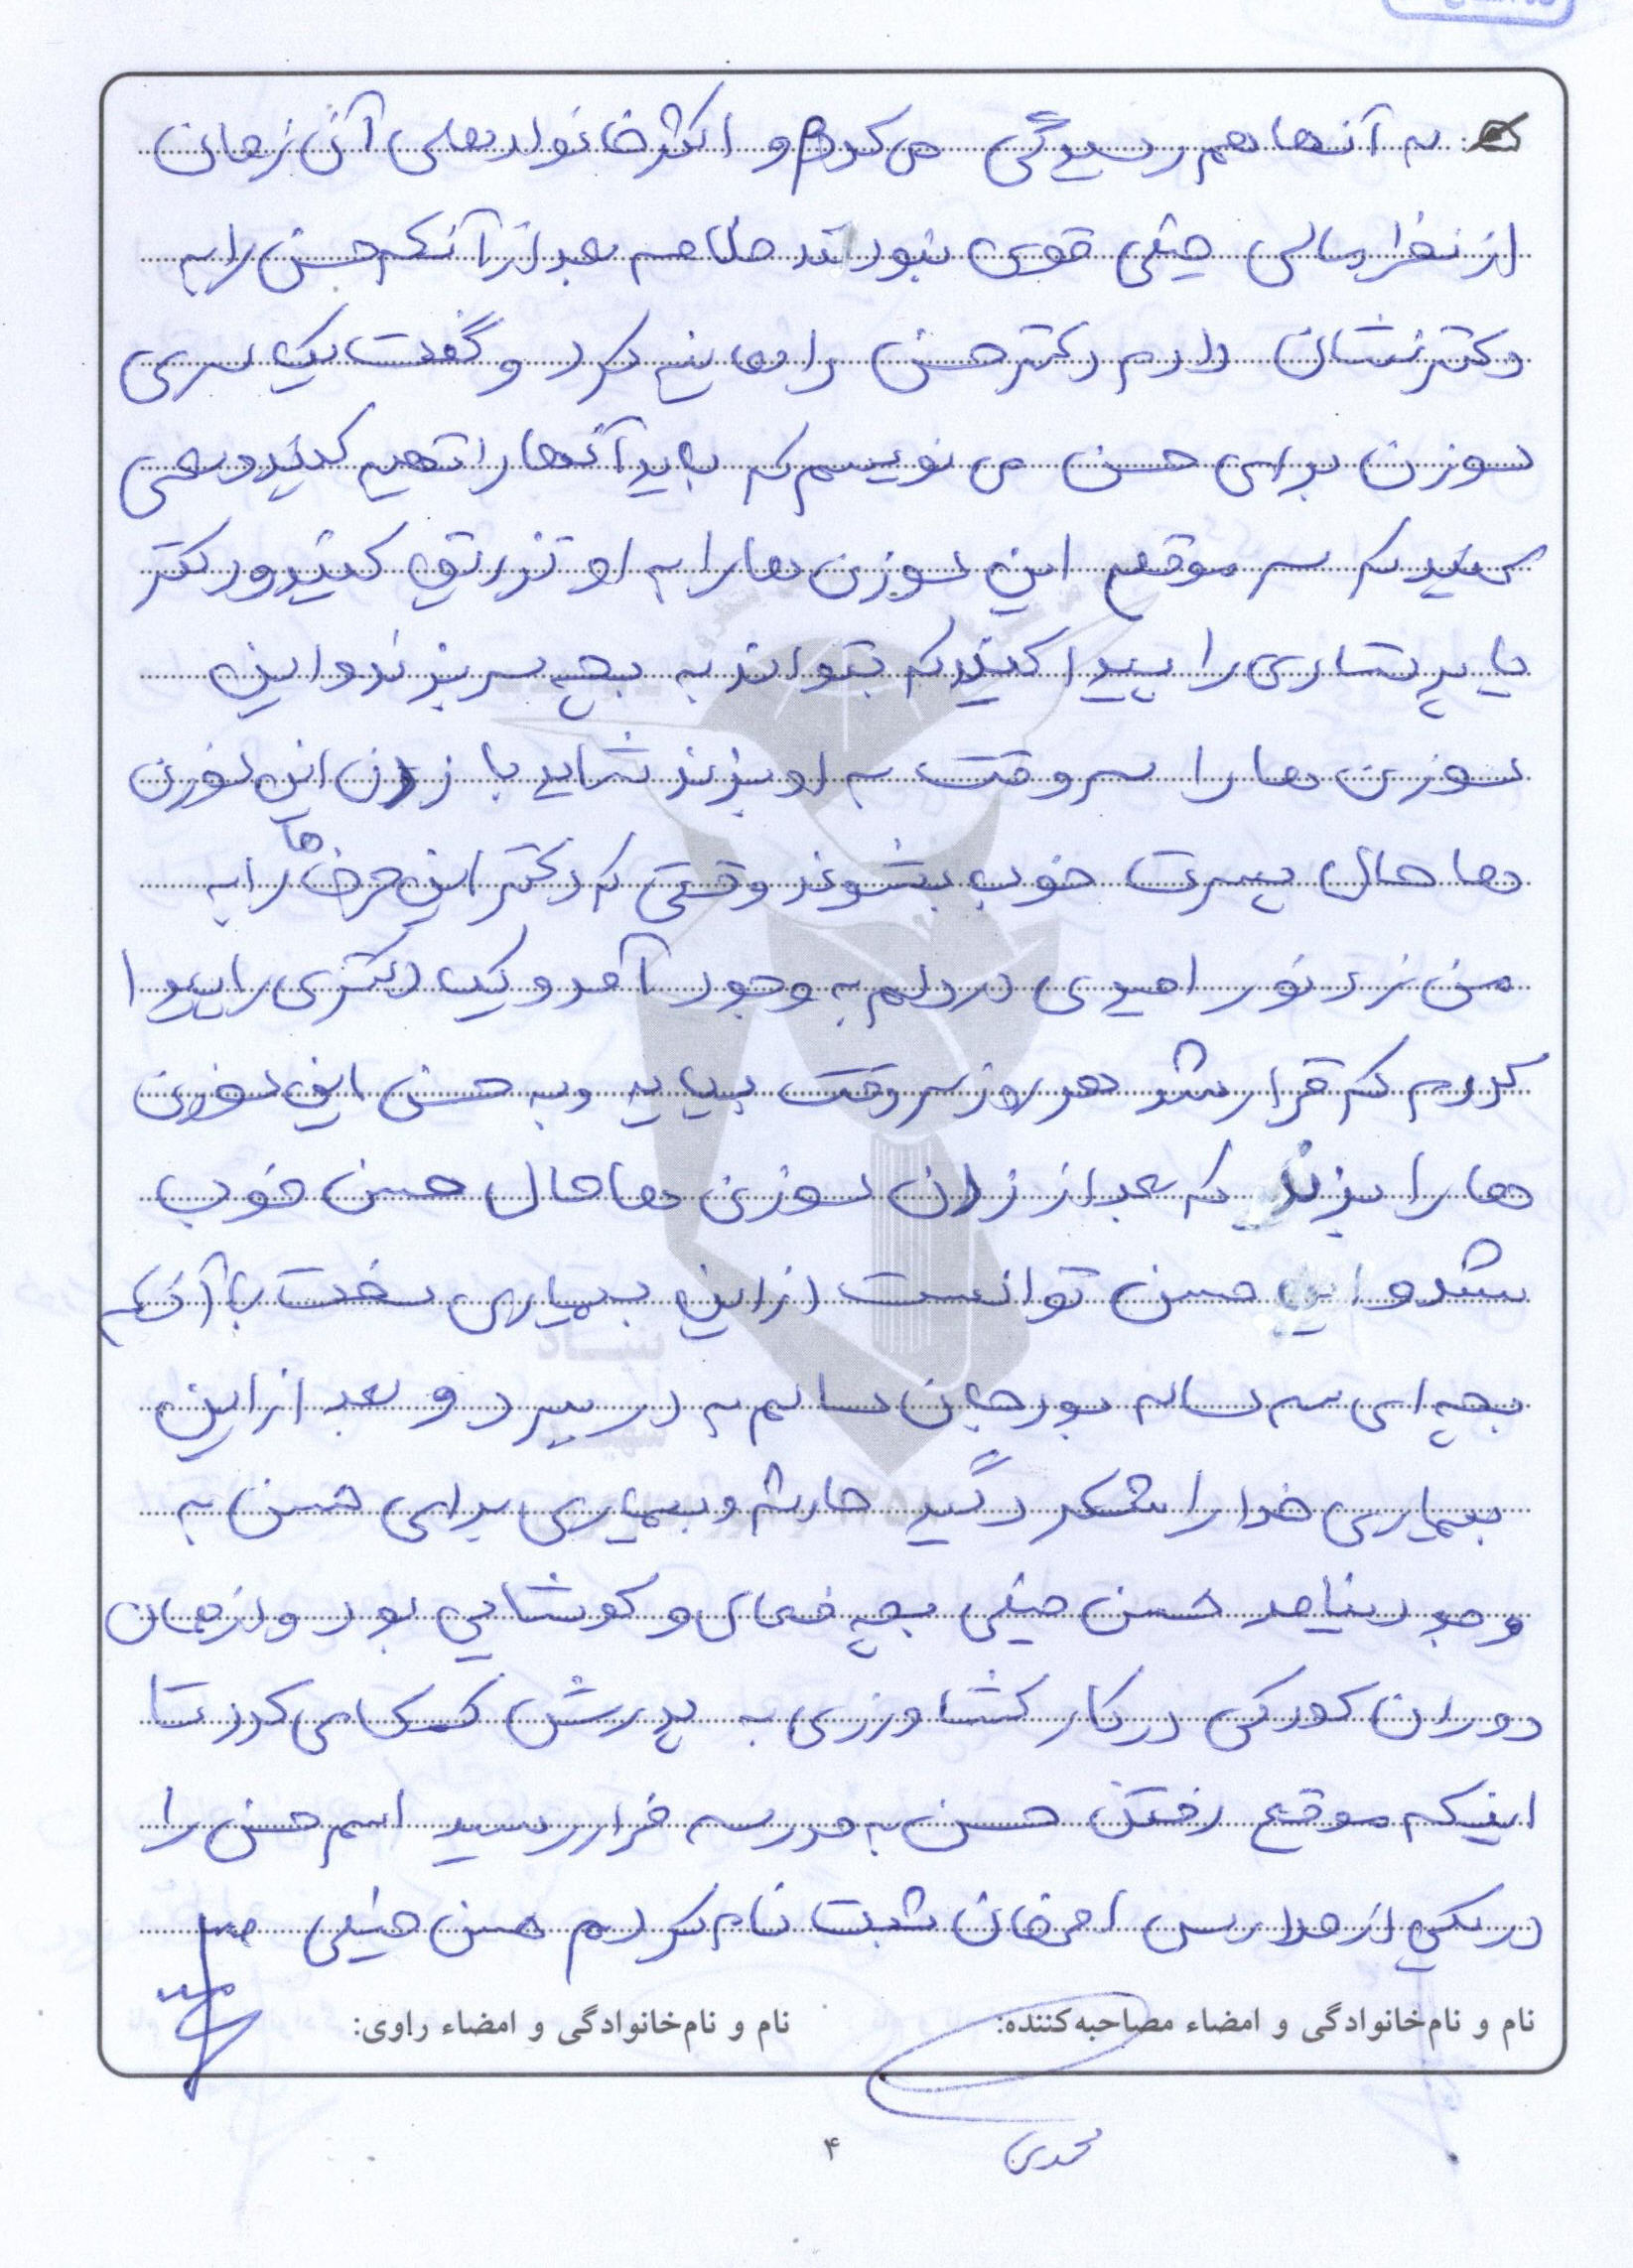 به آنها هم رسیدگی می کردم و اکثر خانواده های آن زمان
از نظر مالی خیلی قوی نبودند خلاصه بعد از آنکه حسن را به
دکتر نشان دادم دکتر حسن را معاینه کرد و گفت یک سری
سوزن برای حسن می نویسم که باید آنها را تهیه کنید و سعی
کنید که سر موقع این سوزن ها را به او تزریق کنید و دکتر
یا پرستاری را پیدا کنید که بتواند به بچه سر بزند و این
سوزن ها را سر وقت به او بزند شاید با زدن این سوزن
ها حال پسرت خوب بشود وقتی که دکتر این حرف ها را به
من زد نور امیدی در دلم به وجود آمد و یک دکتری را پیدا
کردم که قرار شد هر روز سر وقت بیاید و به حسن این سوزن
ها را بزند که بعد از زدن سوزن ها حال حسن خوب
شد و این حسن توانست از این بیماری سخت با آنکه
بچه ای سه ساله بود جان سالم به در ببرد و بعد از این
بیماری خدا را شکر دگید حادثه و بیماری برای حسن به
وجود نیامد حسن خیلی بچه فعال و کوشایی بود و از همان
دوران کودکی در کار کشاورزی به پدرش کمک می کرد تا
اینکه موقع رفتن حسن به مدرسه فرا رسید اسم حسن را
در یکی از مدارس امرغان ثبت نام کردم حسن خیلی
نام و نام‌خانوادگی و امضاء مصاحبه‌کننده: نام و نام‌خانوادگی و امضاء راوی:
محمدی
۴
بنیاد
شهید